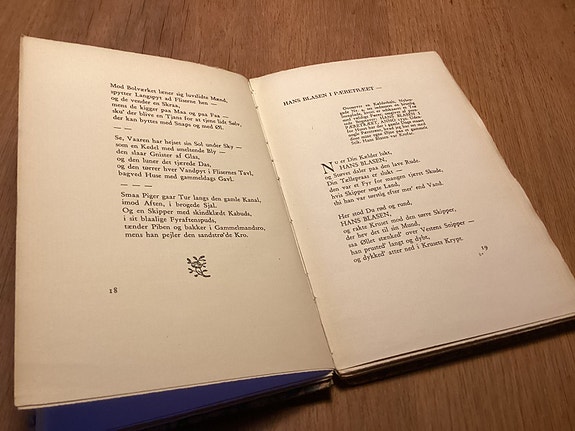 Mod Bolværket læner sig luvslidte Mænd,
spytter Langspyt ad Fliserne hen —
og de vender en Skraa,
mens de kigger paa Maa og paa Faa —
sku' der blive en Tjans for at tjene lidt Sølv,
der kan byttes med Snaps og med Øl.
— —
Se, Vaaren har hejset sin Sol under Sky —
som en Kedel med smeltende Bly —
den slaar Gnister af Glas,
og den luner det tjærede Das,
og den tørrer hver Vandpyt i Flisernes Tavl,
bagved Huse med gammeldags Gavl.
— — —
Smaa Piger gaar Tur langs den gamle Kanal,
imod Aften, i brogede Sjal.
Og en Skipper med skindklædt Kabuds,
i sit blaalige Pyraftenspuds,
tænder Piben og bakker i Gammelmandsro,
mens han pejler den sandstrø'de Kro.
18
HANS BLASEN I PÆRETRÆET —
Ovenover en Kælderhals, Nyhavn
PÆRETRÆET, HANS BLASEN
Nu er Din Kælder lukt,
HANS BLASEN,
og Støvet daler paa den lave Rude.
Din Tællepraas er slukt —
den var et Fyr for mangen tjæret Skude,
hvis Skipper søgte Land,
thi han var tørstig efter mer' end Vand.
Her stod Du rød og rund,
HANS BLASEN,
og rakte Kruset mod den tørre Skipper,
der hev det til sin Mund,
saa Øllet stænked' over Vestens Snipper —
han prusted' langs og dybt,
og dykked' atter ned i Krusets Krypt.
19
2*